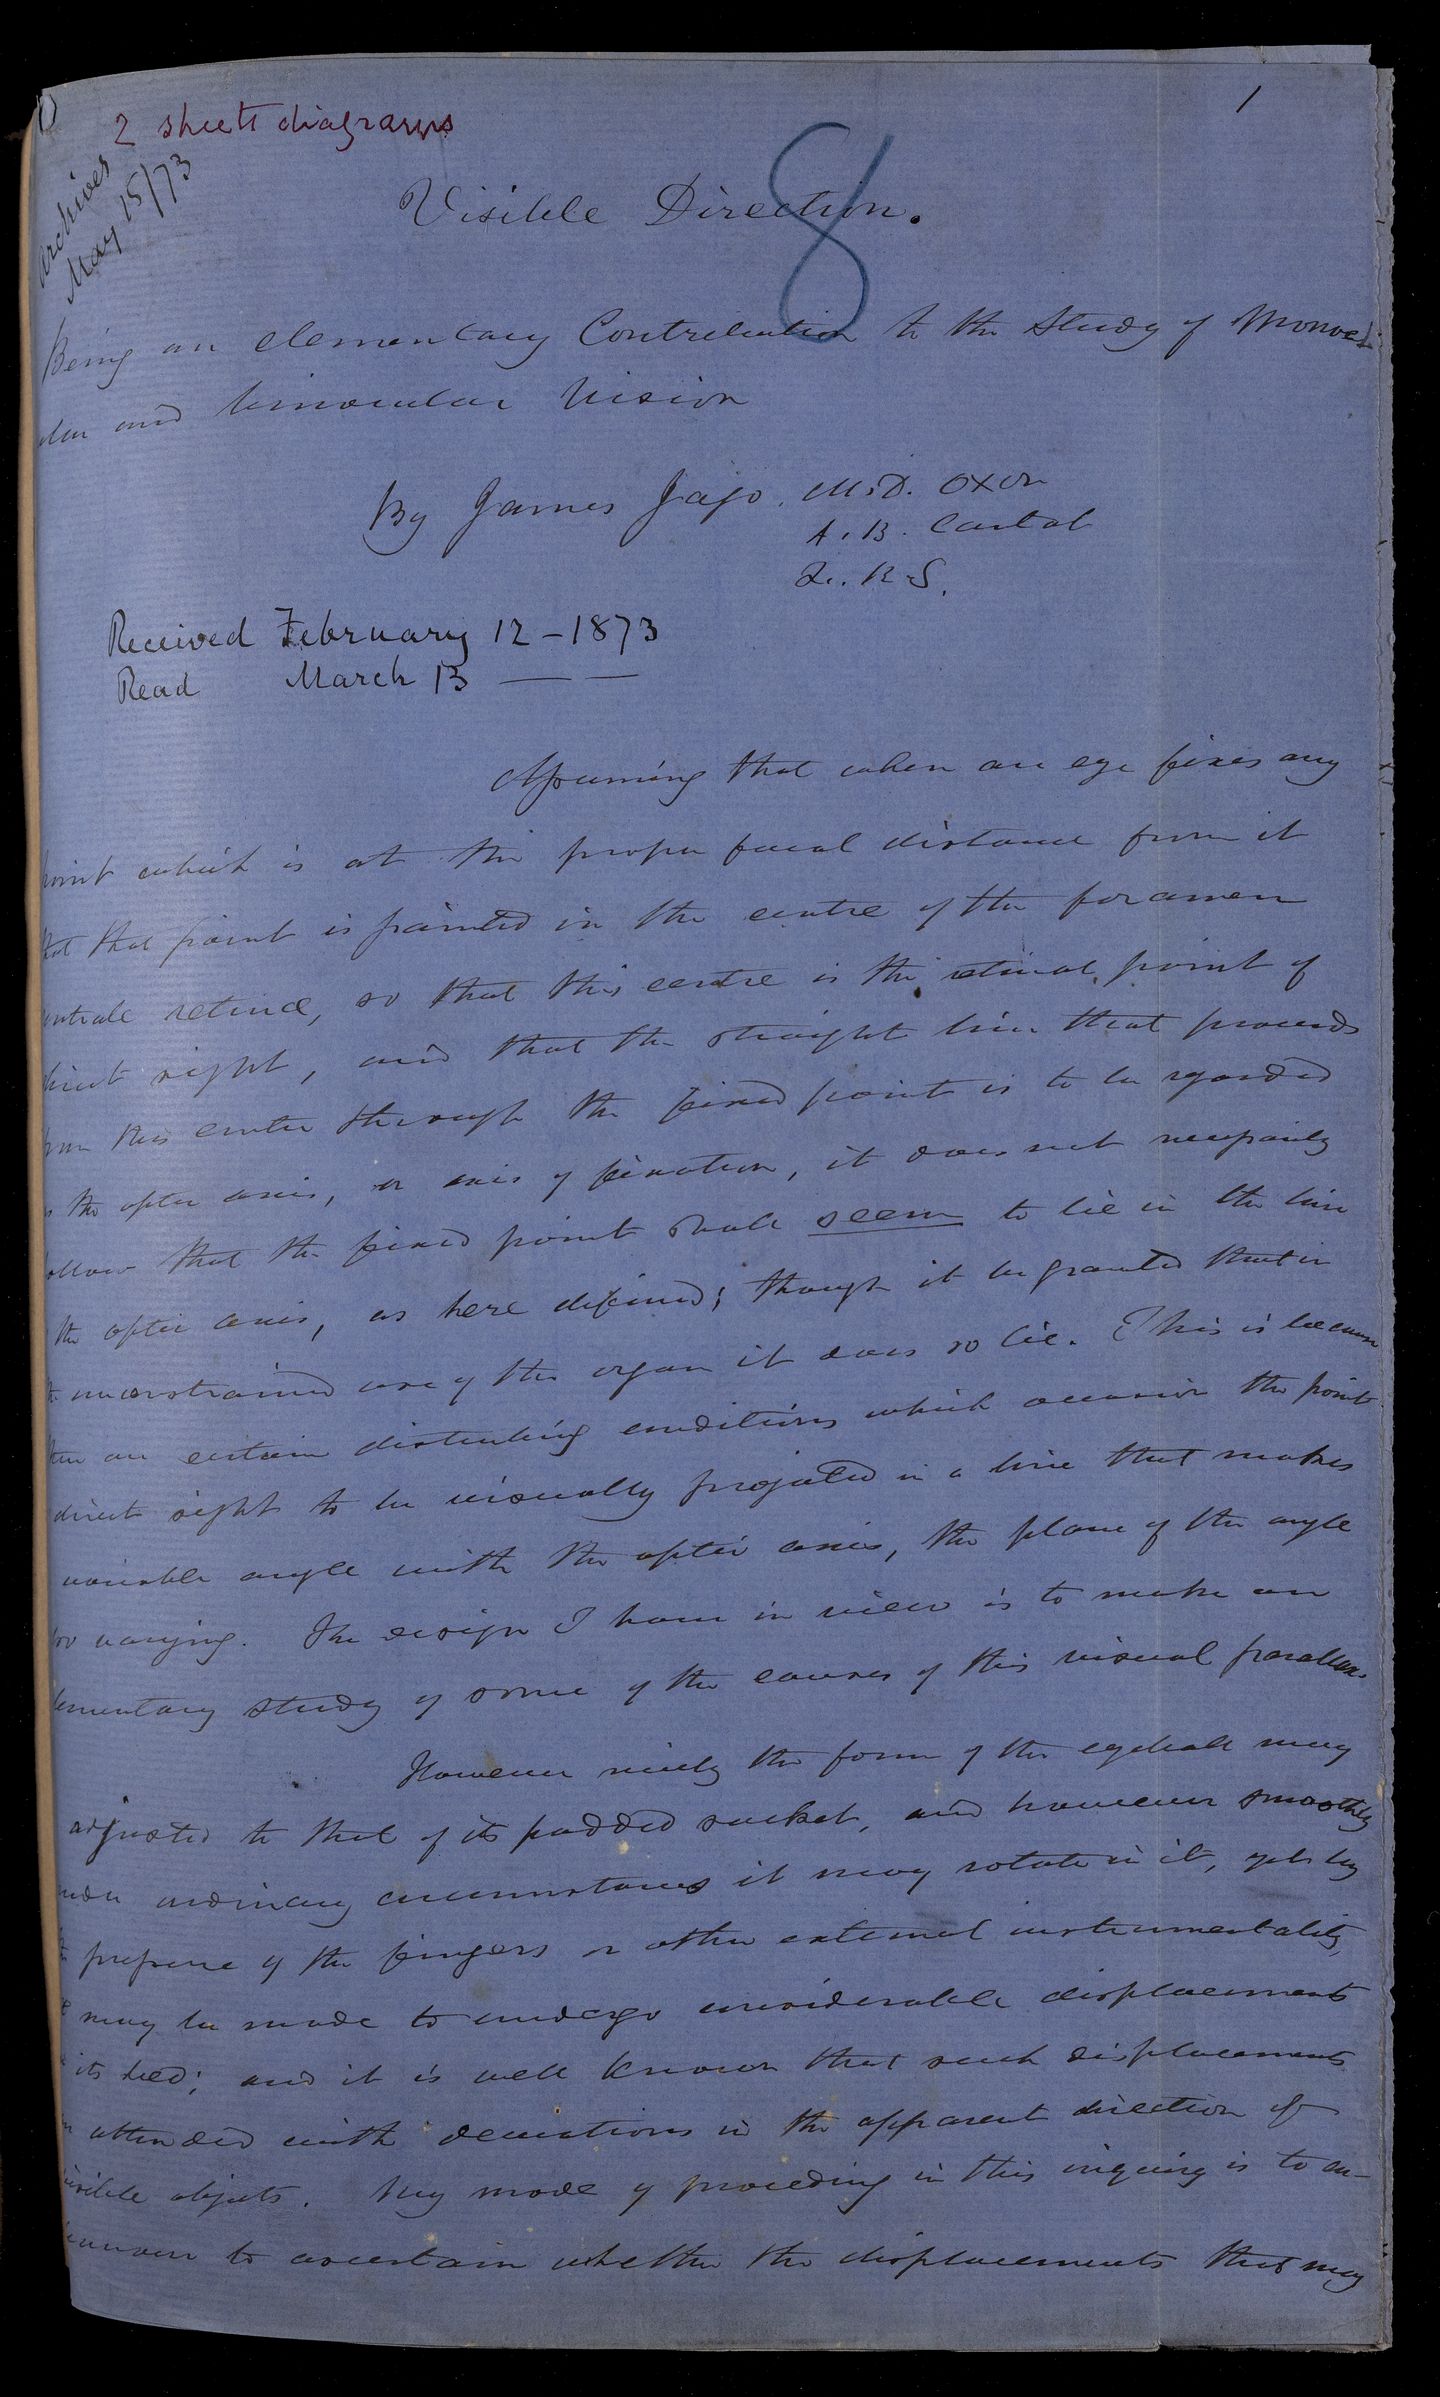 1
2 sheets diagrams
Archives
May 15/73
8
Visible Direction.
Being an elementary Contribution to the Study of Monocu-
lar and binocular Vision
By James Jago. M.D. Oxon
A.B. Cantab
F.R.S.
Received February 12 - 1873
Read March 13 — —
Assuming that when an eye fixes any
point which is at the proper focal distance from it
that that point is painted in the centre of the foramen
centrale retinæ, so that this centre is the retinal point of
direct sight, and that the straight line that proceeds
from this centre through the fixed point is to be regarded
as the optic axis, or axis of fixation, it does not necessarily
follow that the fixed point shall seem to lie in the line
the optic axis, as here defined; though it be granted that in
the unconstrained use of the organ it does so lie. This is because
there are certain disturbing conditions which occasion the point
direct sight to be visually projected in a line that makes
variable angle with the optic axis, the plane of the angle
too varying. The design I have in view is to make an
elementary study of some of the causes of this visual parallax.
However nicely the form of the eyeball may
adjusted to that of its padded socket, and however smoothly
under ordinary circumstances it may rotate in it, yet by
the pressure of the fingers or other external instrumentality,
may be made to undergo considerable displacements
its bed; and it is well known that such displacements
attended with deviations in the apparent direction of
visible objects. My mode of proceeding in this inquiry is to en-
deavour to ascertain whether the displacements that may